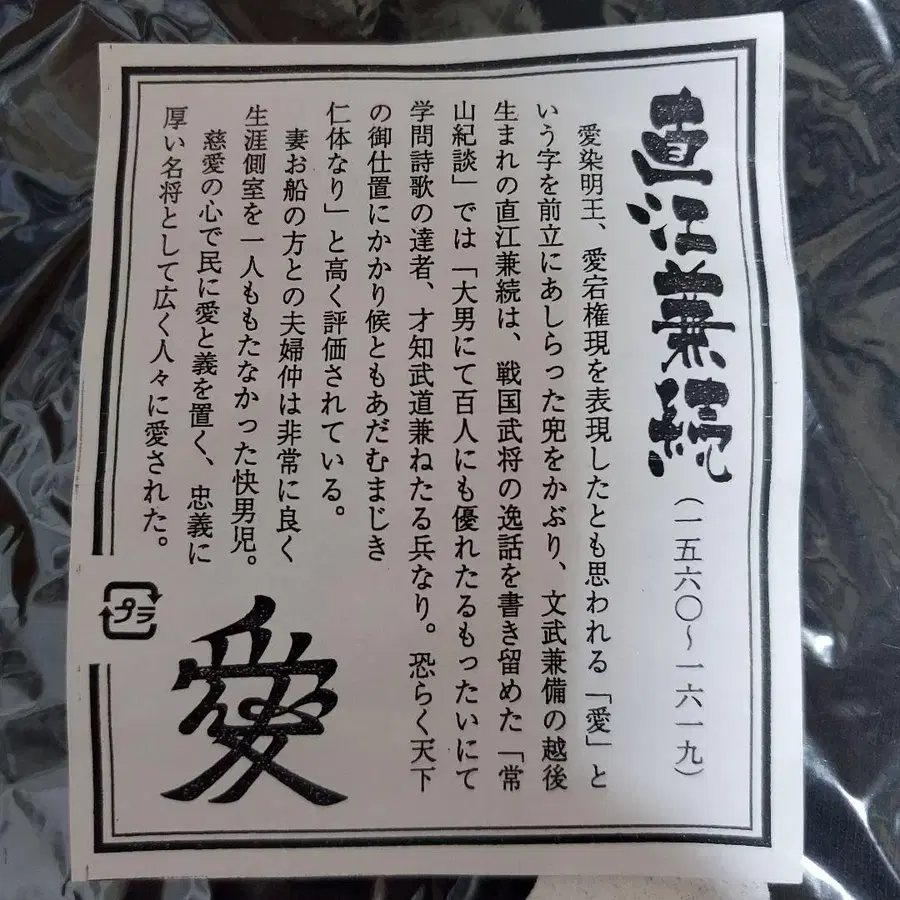 直江兼続
(一五六〇~一六一九)
愛染明王、愛宕権現を表現したとも思われる「愛」と
いう字を前立にあしらった兜をかぶり、文武兼備の越後
生まれの直江兼続は、戦国武将の逸話を書き留めた「常
山紀談」では「大男にて百人にも優れたるもったいにて
学問詩歌の達者、才知武道兼ねたる兵なり。恐らく天下
の御仕置にかかり候ともあだむまじき
仁体なり」と高く評価されている。
妻お船の方との夫婦仲は非常に良く
生涯側室を一人ももたなかった快男児。
慈愛の心で民に愛と義を置く、忠義に
厚い名将として広く人々に愛された。
愛
プラ